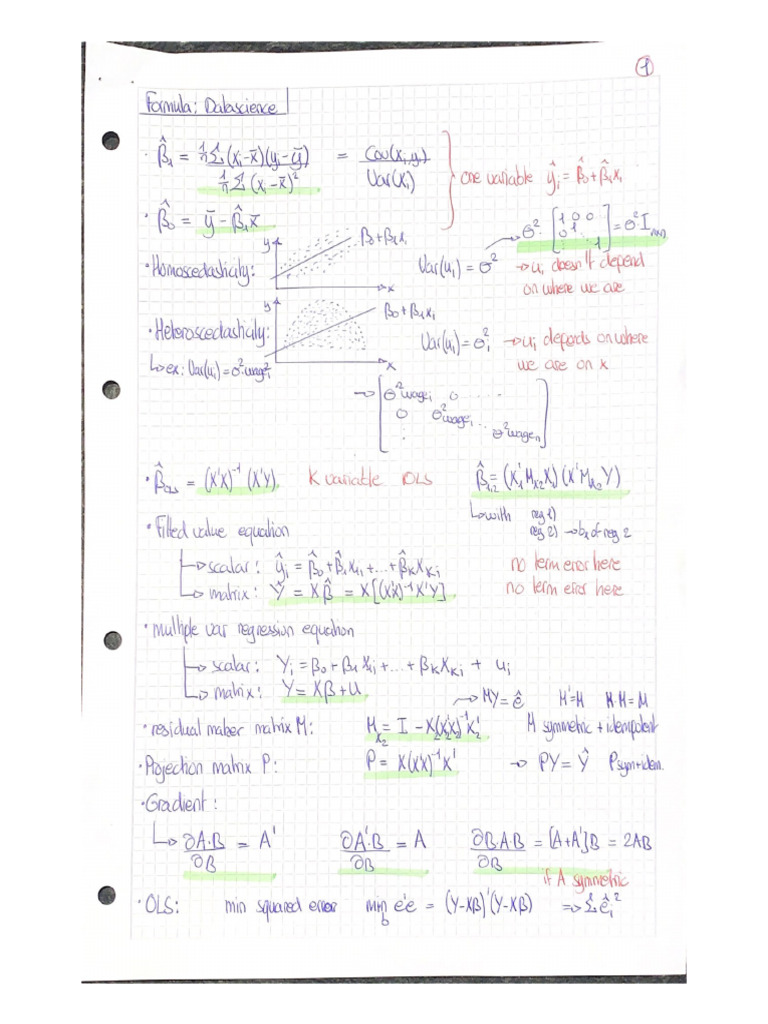 1
Formula: Datascience
· β̂₁ = 1/n Σ(xᵢ-x̄)(yᵢ-ȳ) / 1/n Σ(xᵢ-x̄)² = Cov(xᵢ,yᵢ) / Var(xᵢ) } one variable ŷᵢ = β̂₀+β̂₁xᵢ
· β̂₀ = ȳ - β̂₁x̄
y β₀+β₁xᵢ x
· Homoscedasticity: Var(uᵢ) = σ² → σ²·[1 0 0 0 1 . : ⋱ 1] = σ²·Iₙₓₙ
→ uᵢ doesn't depend
on where we are
y β₀+β₁xᵢ x
· Heteroscedasticity: Var(uᵢ) = σᵢ² → uᵢ depends on where
we are on x
↳ ex: Var(uᵢ) = σ²·wageᵢ
→ [σ²wageᵢ 0 .....
0 σ²wageᵢ ...
: σ²wageₙ]
· β̂ₒₗₛ = (X'X)⁻¹ (X'Y) K variable OLS β̂₁,₂ = (X₁'Mₓ₂X₁)(X'Mₓ₂Y)
↳ with reg 1)
reg 2) → b₂ of reg 2
· Fitted value equation
↳ scalar: ŷᵢ = β̂₀+β̂₁X₁ᵢ+...+β̂ₖXₖᵢ no term error here
↳ matrix: Ŷ = Xβ̂ = X[(X'X)⁻¹X'Y] no term error here
· multiple var regression equation
↳ scalar: Yᵢ = β₀+β₁X₁ᵢ+...+βₖXₖᵢ + uᵢ
↳ matrix: Y = Xβ+U
→ MY = ê M'=M M·M=M
· residual maker matrix M: Mₓ₂ = I - X₂(X₂'X₂)⁻¹X₂' M symmetric + idempotent
· Projection matrix P: P = X(X'X)⁻¹X' → PY = Ŷ P sym+idem.
· Gradient:
↳ ∂A·B / ∂B = A' ∂A'·B / ∂B = A ∂B·A·B / ∂B = [A+A']B = 2AB
if A symmetric
· OLS: min squared error min b e'e = (Y-Xβ)'(Y-Xβ) => Σêᵢ²